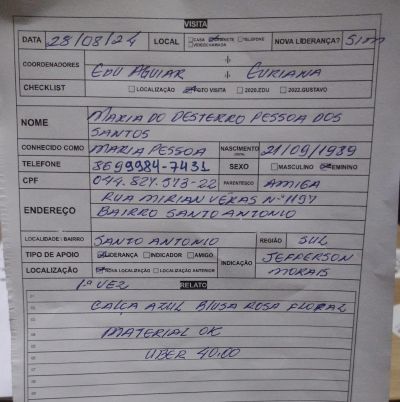 VISITA
DATA 28/08/24 LOCAL CASA GABINETE TELEFONE VIDEOCHAMADA NOVA LIDERANÇA? SIM
COORDENADORES EDU AGUIAR + EURIANA
CHECKLIST LOCALIZAÇÃO FOTO VISITA 2020.EDU 2022.GUSTAVO
NOME MARIA DO DESTERRO PESSOA DOS
SANTOS
CONHECIDO COMO MARIA PESSOA NASCIMENTO 21/09/1939
TELEFONE 8699984-7431 SEXO MASCULINO FEMININO
CPF 044.827.573-22 PARENTESCO AMIGA
ENDEREÇO RUA MIRIAN VERAS Nº 1197
BAIRRO SANTO ANTONIO
LOCALIDADE \ BAIRRO SANTO ANTONIO REGIÃO SUL
TIPO DE APOIO LIDERANÇA INDICADOR AMIGO INDICAÇÃO JEFFERSON
LOCALIZAÇÃO NOVA LOCALIZAÇÃO LOCALIZAÇÃO ANTERIOR MORAIS
1ª VEZ RELATO
CALÇA AZUL BLUSA ROSA FLORAL
MATERIAL OK
UBER 40,00